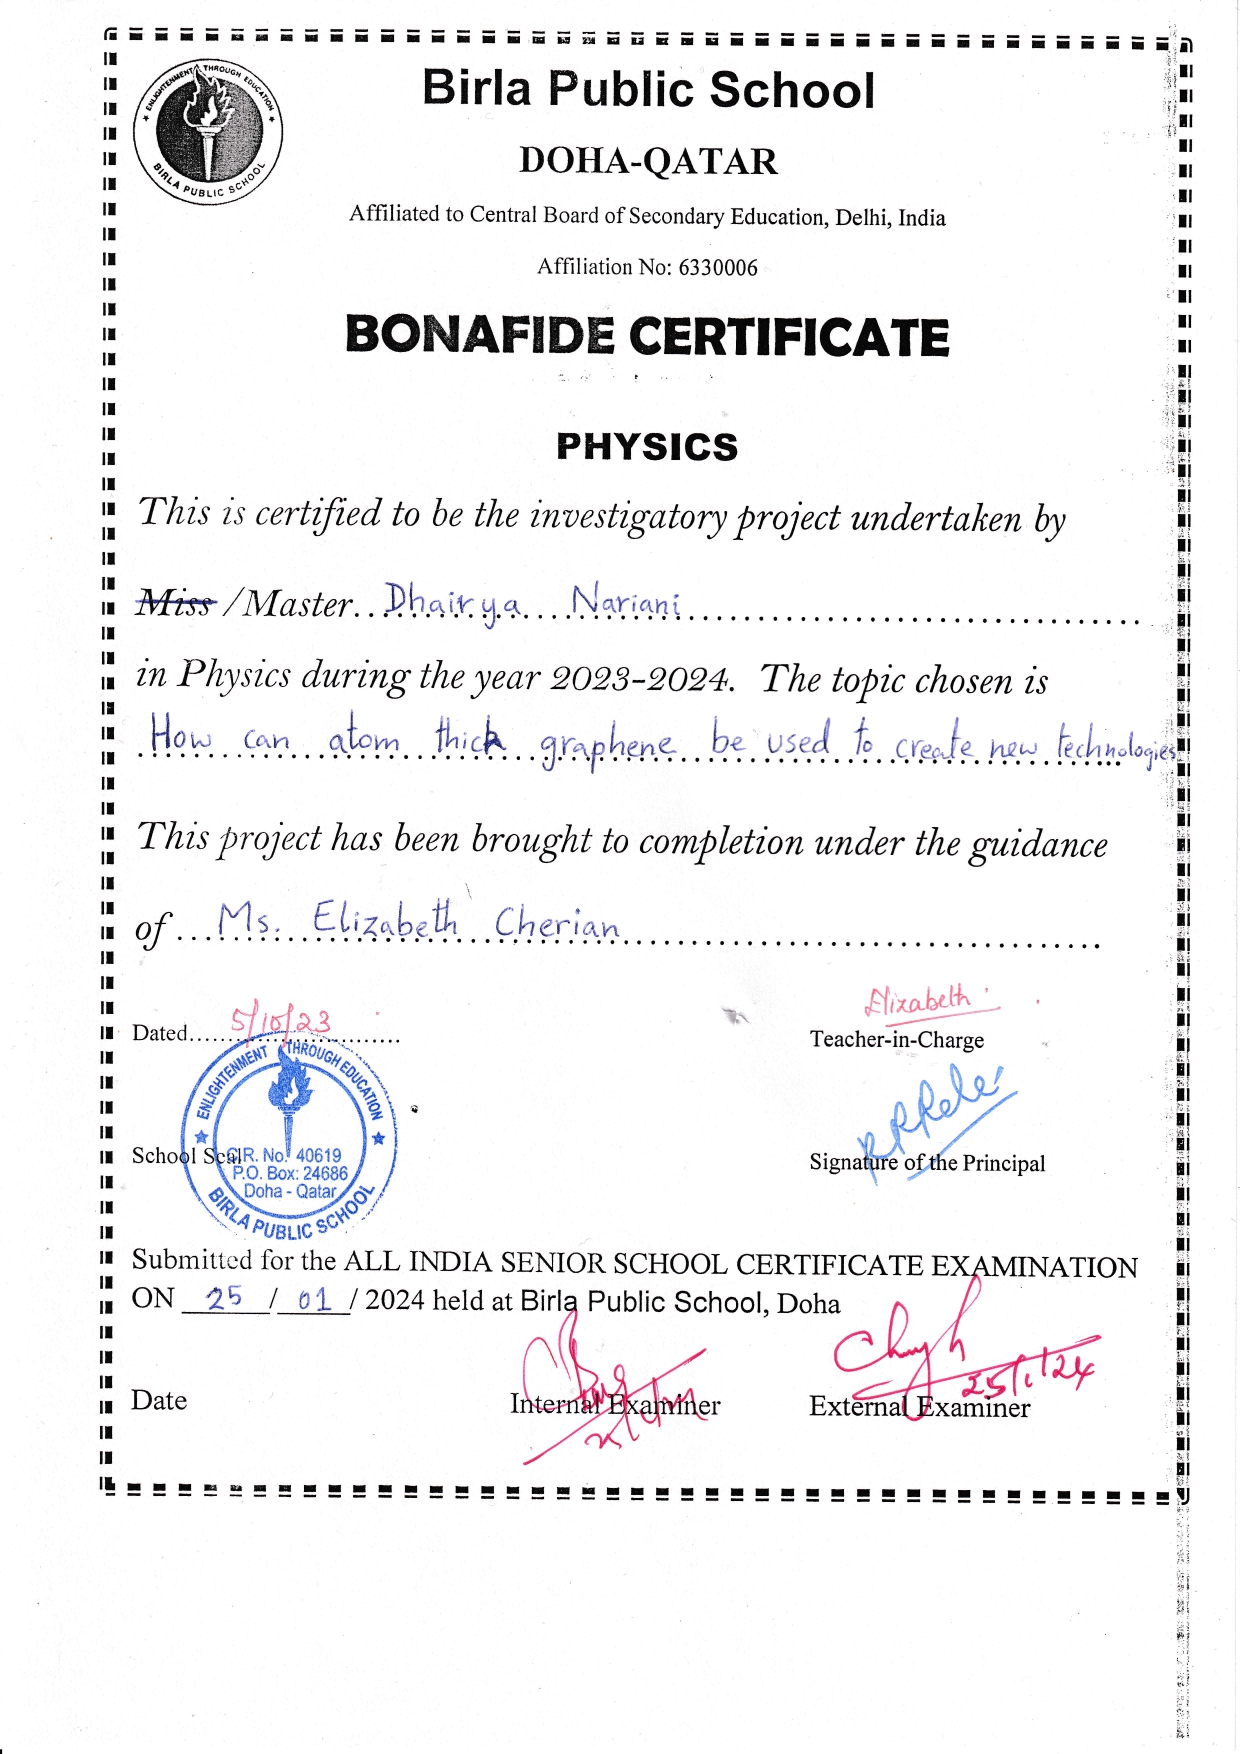 ENLIGHTENMENT THROUGH EDUCATION
BIRLA PUBLIC SCHOOL
Birla Public School
DOHA-QATAR
Affiliated to Central Board of Secondary Education, Delhi, India
Affiliation No: 6330006
BONAFIDE CERTIFICATE
PHYSICS
This is certified to be the investigatory project undertaken by
Miss /Master..Dhairya Nariani
in Physics during the year 2023-2024. The topic chosen is
How can atom thick graphene be used to create new technologies
This project has been brought to completion under the guidance
of...Ms. Elizabeth Cherian
Dated 5/10/23
Elizabeth
Teacher-in-Charge
ENLIGHTENMENT THROUGH EDUCATION
School Seal
C.R. No. 40619
P.O. Box: 24686
Doha - Qatar
BIRLA PUBLIC SCHOOL
Signature of the Principal
Submitted for the ALL INDIA SENIOR SCHOOL CERTIFICATE EXAMINATION
ON 25 / 01 / 2024 held at Birla Public School, Doha
25/1/24
Date Internal Examiner External Examiner